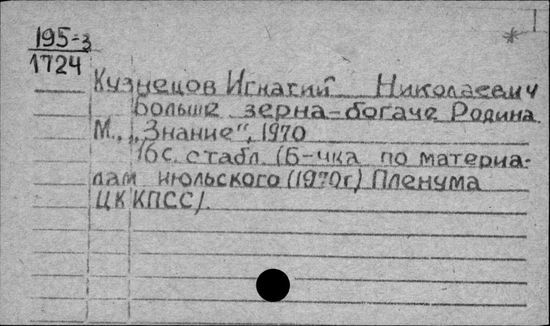 195-3
1724
Кузнецов Игнатий Николаевич
Больше зерна-богаче Родина
М., „Знание", 1970
16 с. с табл. (Б-чка по материа-
лам июльского (1970г) Пленума
ЦК КПСС).